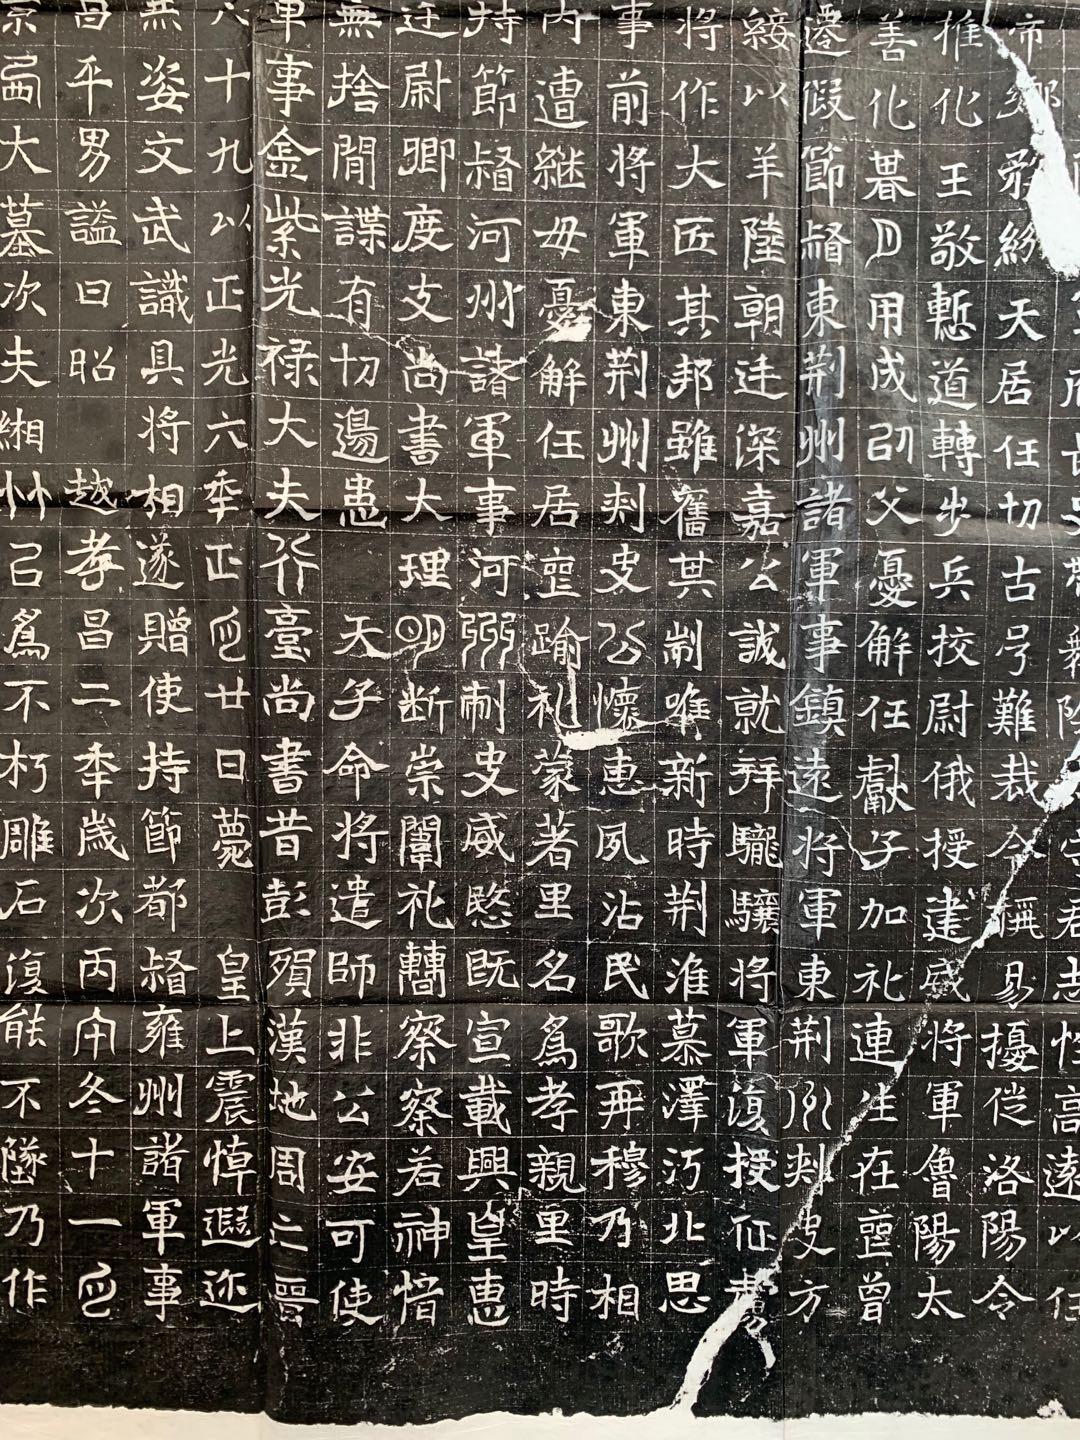 性高遠以任
市鄉⿰紛天居任切古号難裁今俱易擾從洛陽令
推化王敬慙道轉步兵挍尉俄授建威將軍魯陽太
善化朞月用成祁父憂解任獻子加礼連生在䘮曾
遷假節督東荆州諸軍事鎮遠將軍東荆州刾史方
綏以羊陸朝廷深嘉公誠就拜驪驤將軍復授征虜
將作大匠其邦雖舊其制唯新時荆淮慕澤沔北思
事前將軍東荆州刾史公懷恵夙沾民歌再穆乃相
内遭継母憂解任居䘮踰礼蒙若里名為孝親里時
持節督河州諸軍事河州刺史威愍既宣載興皇恵
廷尉卿度支尚書大理明断崇闡礼轉察察若神愔
無捨閒諜有切邊患天子命將遣師非公安可使
軍事金紫光禄大夫行臺尚書昔彭殞漢地周亡晉
六十九以正光六年正月廿日薨皇上震悼遐迩
無姿文武識具將相遂贈使持節都督雍州諸軍事
昌平男謚曰昭越孝昌二年歲次丙午冬十一月
京西大墓次夫緗竹已為不朽雕石復能不墜乃作